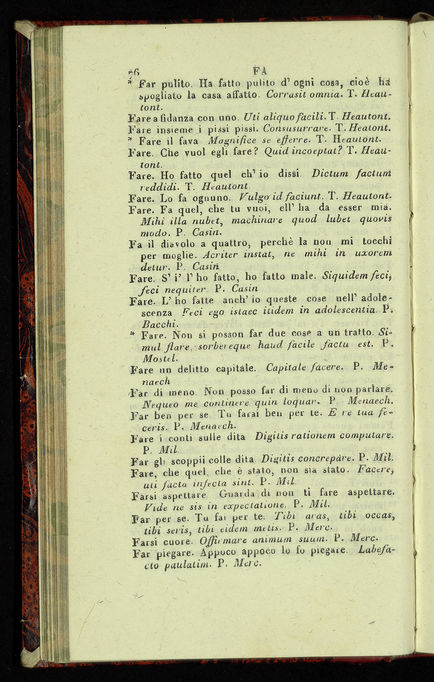 56 FA
* Far pulito. Ha fatto pulito d' ogni cosa, cioè ha
spogliato la casa affatto. Corrasit omnia. T. Heau-
tont.
Fare a fidanza con uno. Uti aliquo facili. T. Heautont.
Fare insieme i pissi pissi. Consusurrare. T. Heatont.
* Fare il fava Magnifice se efferre. T. Heautont.
Fare. Che vuol egli fare? Quid incoeptat? T. Heau-
tont.
Fare. Ho fatto quel ch' io dissi. Dictum factum
reddidi. T. Heautont
Fare. Lo fa ognuno. Vulgo id faciunt. T. Heautont.
Fare. Fa quel, che tu vuoi, ell' ha da esser mia.
Mihi illa nubet, machinare quod lubet quovis
modo. P. Casin.
Fa il diavolo a quattro, perchè la non mi tocchi
per moglie. Acriter instat, ne mihi in uxorem
detur. P. Casin
Fare. S' i' l' ho fatto, ho fatto male. Siquidem feci,
feci nequiter. P. Casin
Fare. L' ho fatte anch' io queste cose nell' adole-
scenza Feci ego istaec itidem in adolescentia. P.
Bacchi.
* Fare. Non si posson far due cose a un tratto. Si-
mul flare sorbereque haud facile factu est. P.
Mostel.
Fare un delitto capitale. Capitale facere. P. Me-
naech
Far di meno. Non posso far di meno di non parlare.
Nequeo me continere quin loquar. P. Menaech.
Far ben per se. Tu farai ben per te. E re tua fe-
ceris. P. Menaech.
Fare i conti sulle dita Digitis rationem computare.
P. Mil.
Far gli scoppii colle dita Digitis concrepare. P. Mil.
Fare, che quel, che è stato, non sia stato. Facere,
uti facta infecta sint. P. Mil.
Farsi aspettare. Guarda di non ti fare aspettare.
Vide ne sis in expectatione. P. Mil.
Far per se. Tu fai per te. Tibi aras, tibi occas,
tibi seris, tibi eidem metis. P. Merc.
Farsi cuore. Offirmare animum suum. P. Merc.
Far piegare. Appoco appoco lo fo piegare. Labefa-
cto paulatim. P. Merc.